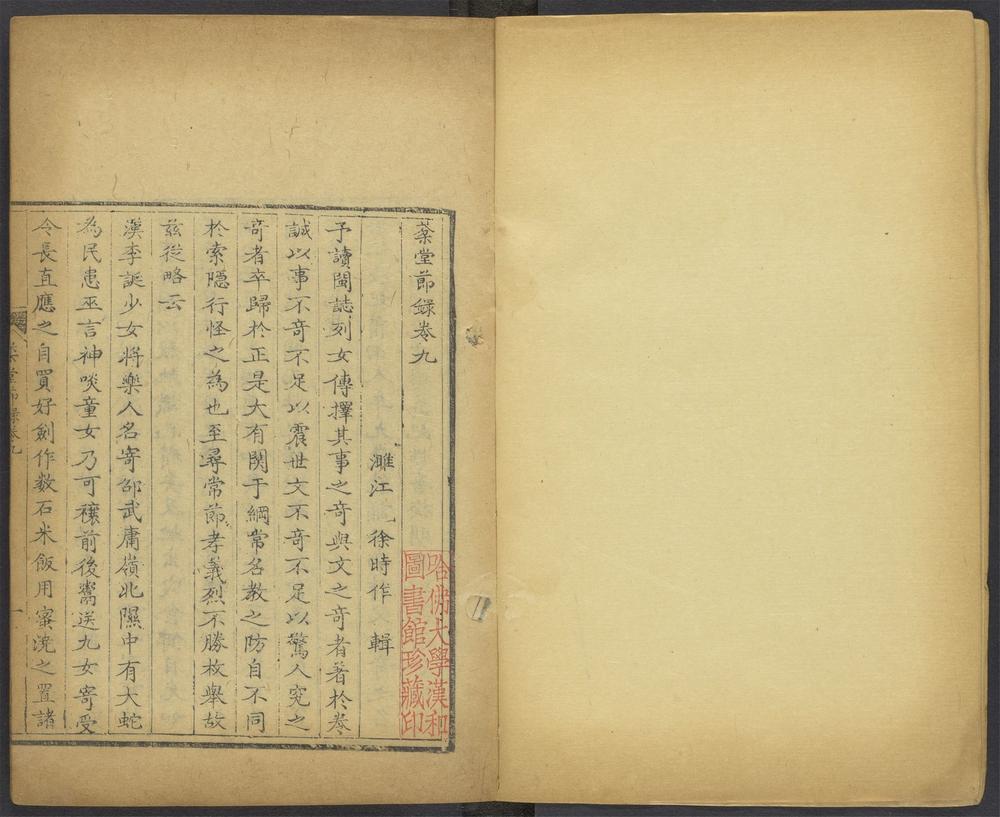 菜堂節録卷九
濉江 徐時作 輯
予讀閩誌列女傳擇其事之奇與文之奇者著於卷
誠以事不奇不足以震世文不奇不足以驚人究之
奇者卒歸於正是大有関于綱常名教之防自不同
於索隱行怪之為也至尋常節孝義烈不勝枚舉故
兹從略云
漢李誕少女將樂人名寄邵武庸嶺北隰中有大蛇
為民患巫言神啖童女乃可禳前後鬻送九女寄受
令長直應之自買好劍作数石米飯用蜜澆之置諸
菜堂節録卷九
一
哈佛大學漢和
圖書館珍藏印